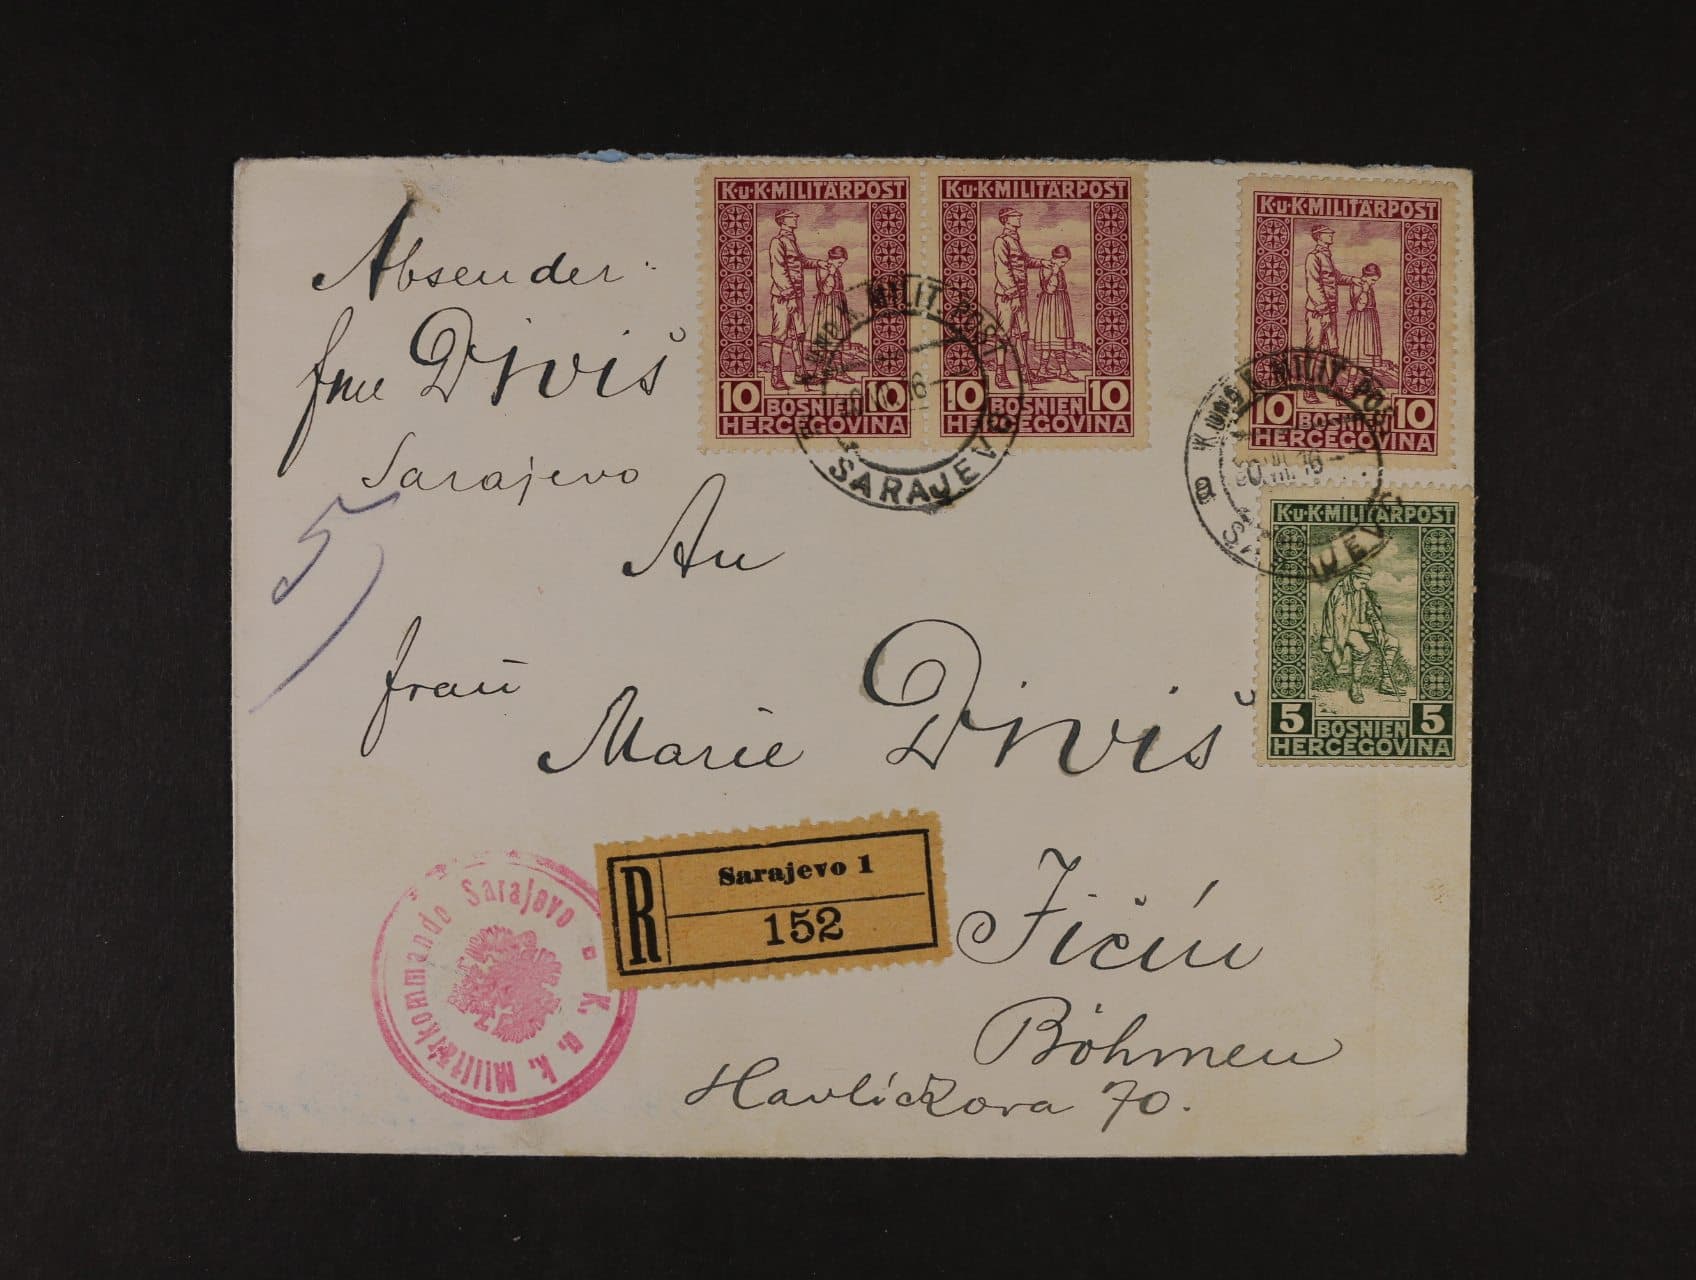 Absender
Diviš
Sarajevo
K.u.K.MILITÄRPOST
10 10
BOSNIEN
HERCEGOVINA
K.u.K.MILITÄRPOST
10 10
BOSNIEN
HERCEGOVINA
K.u.K.MILITÄRPOST
10 10
BOSNIEN
HERCEGOVINA
K.u.K.MILITÄRPOST
5 5
BOSNIEN
HERCEGOVINA
K. UND K. MILIT. POST
SARAJEVO
K. UND K. MILIT. POST
a
SARAJEVO
5
An
Frau
Marie Diviš
R
Sarajevo 1
152
K. u. k. Militärkommando Sarajevo
Jičín
Böhmen
Havlíčkova 70.